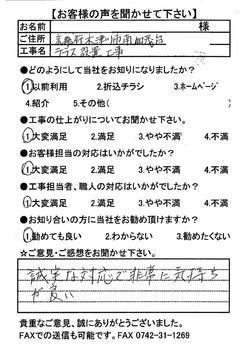 【お客様の声を聞かせて下さい】
お名前 様
ご住所 京都府木津川市南加茂台
工事名 テラス設置工事
●どのようにして当社をお知りになりましたか?
①以前利用 2.折込チラシ 3.ホームページ
4.紹介 5.その他( )
●工事の仕上がりについてお聞かせ下さい。
①大変満足 2.満足 3.やや不満 4.不満
●お客様担当の対応はいかがでしたか?
①大変満足 2.満足 3.やや不満 4.不満
●工事担当者、職人の対応はいかがでしたか?
①大変満足 2.満足 3.やや不満 4.不満
●お知り合いの方に当社をお勧め頂けますか?
①勧めても良い 2.わからない 3.勧めたくない
☆ご意見・ご感想をお聞かせ下さい。
誠実な対応で非常に気持ち
が良い
貴重なご意見、誠にありがとうございました。
FAXでの送信も可能です。FAX 0742-31-1269